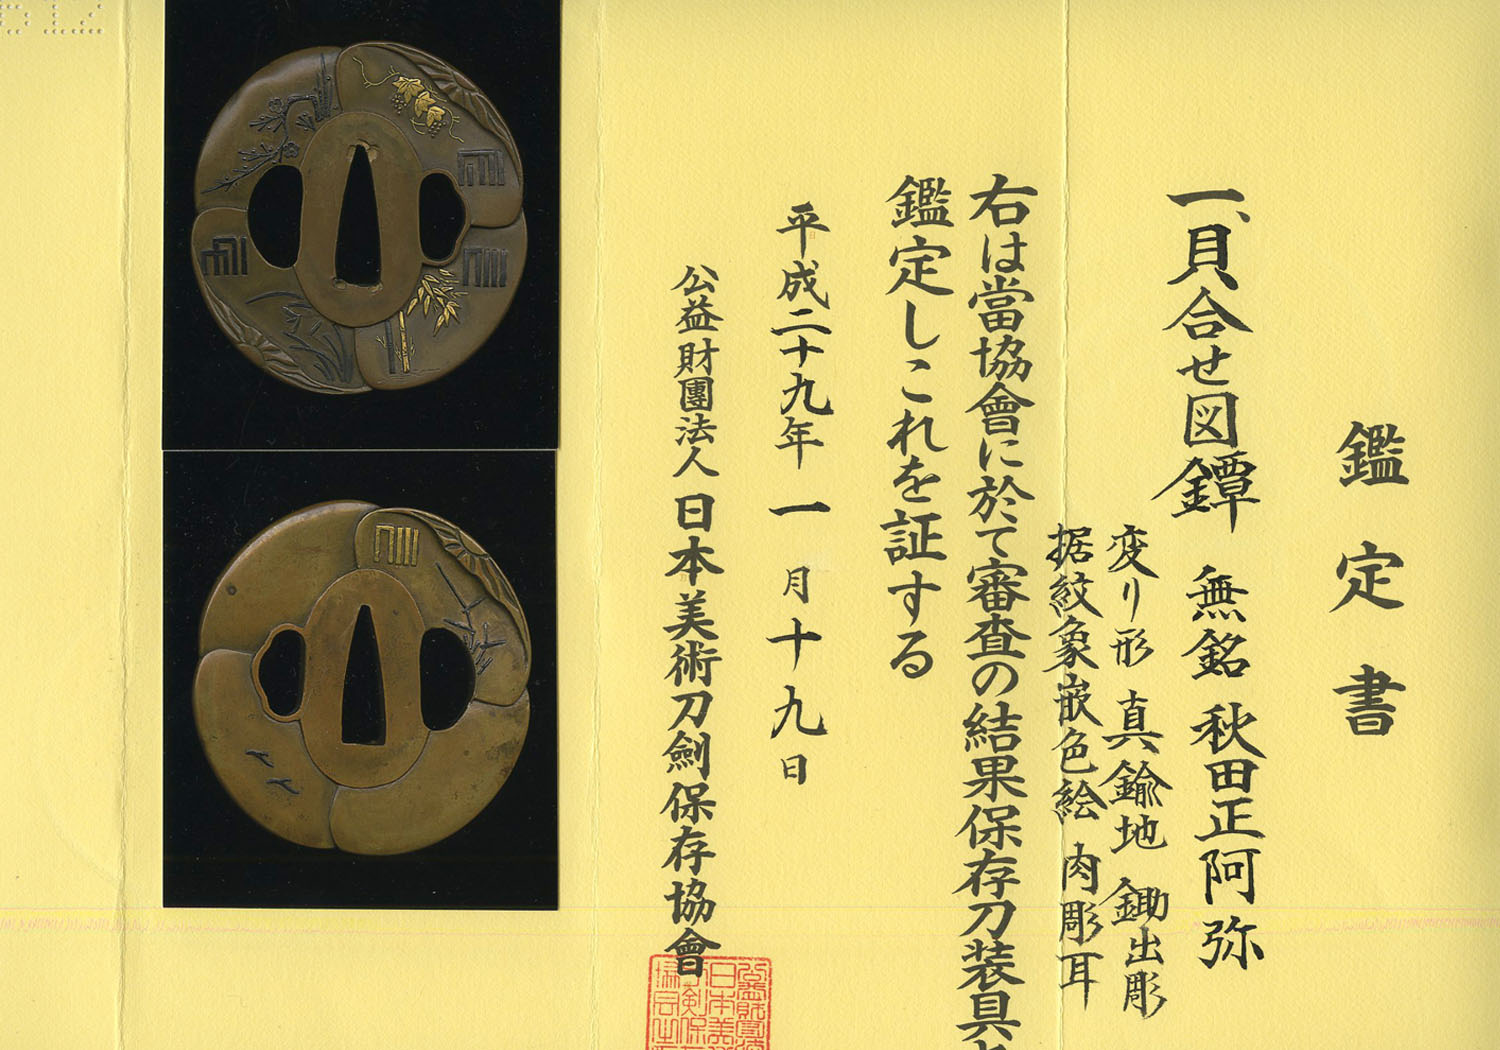 鑑定書
一、貝合せ図鐔 無銘 秋田正阿弥
変り形 真鍮地 鋤出彫
据紋象嵌色絵 肉彫耳
右は當協會に於て審査の結果保存刀装具と
鑑定しこれを証する
平成二十九年一月十九日
公益財團法人 日本美術刀劍保存協會